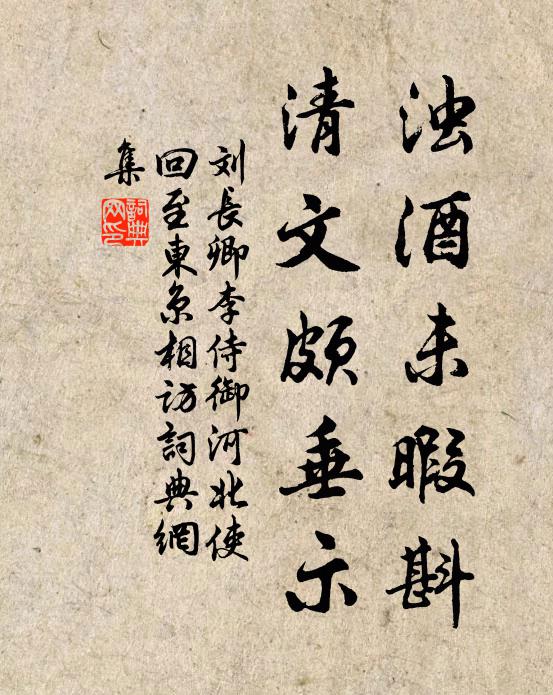 浊酒未暇斟
清文颇垂示
刘長卿李侍御河北使
回至東京相访詞典網
集
詞典
网印